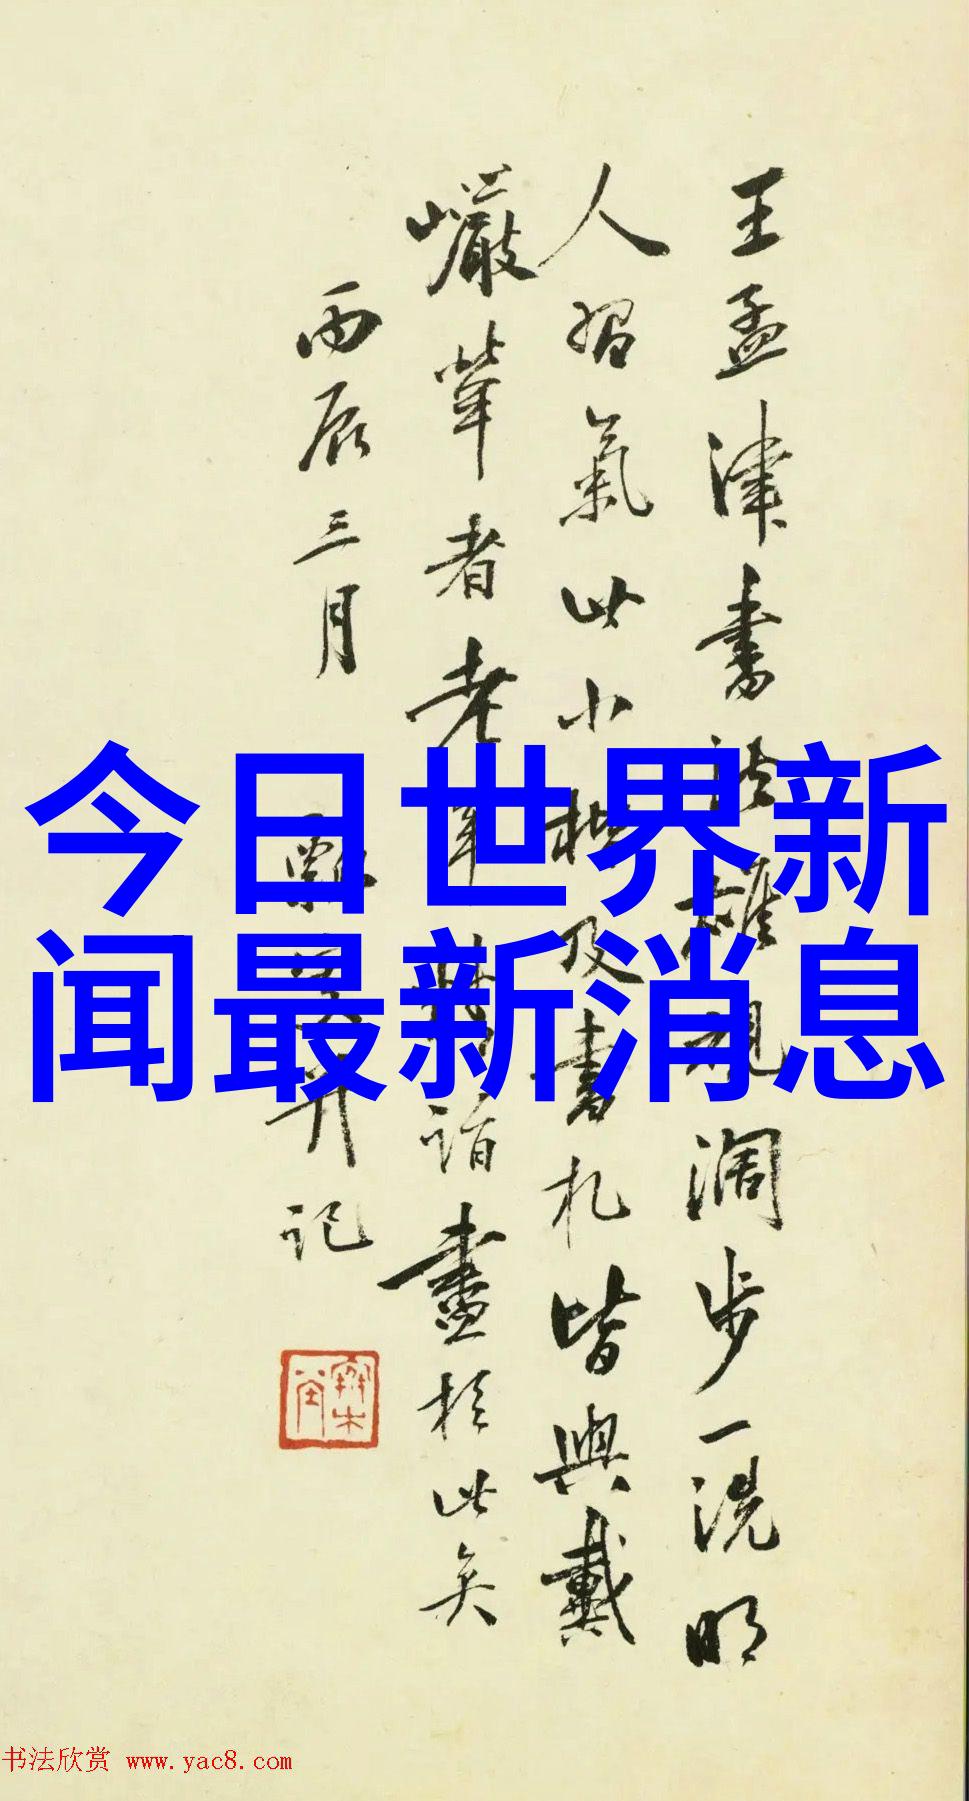 王孟津書法雄視闊步一洗明
人習氣此小楷及書札皆與戴
巖犖者老年
詣畫於此矣
丙辰三月
記
今日世界新
闻最新消息
书法欣赏 www.yac8.com